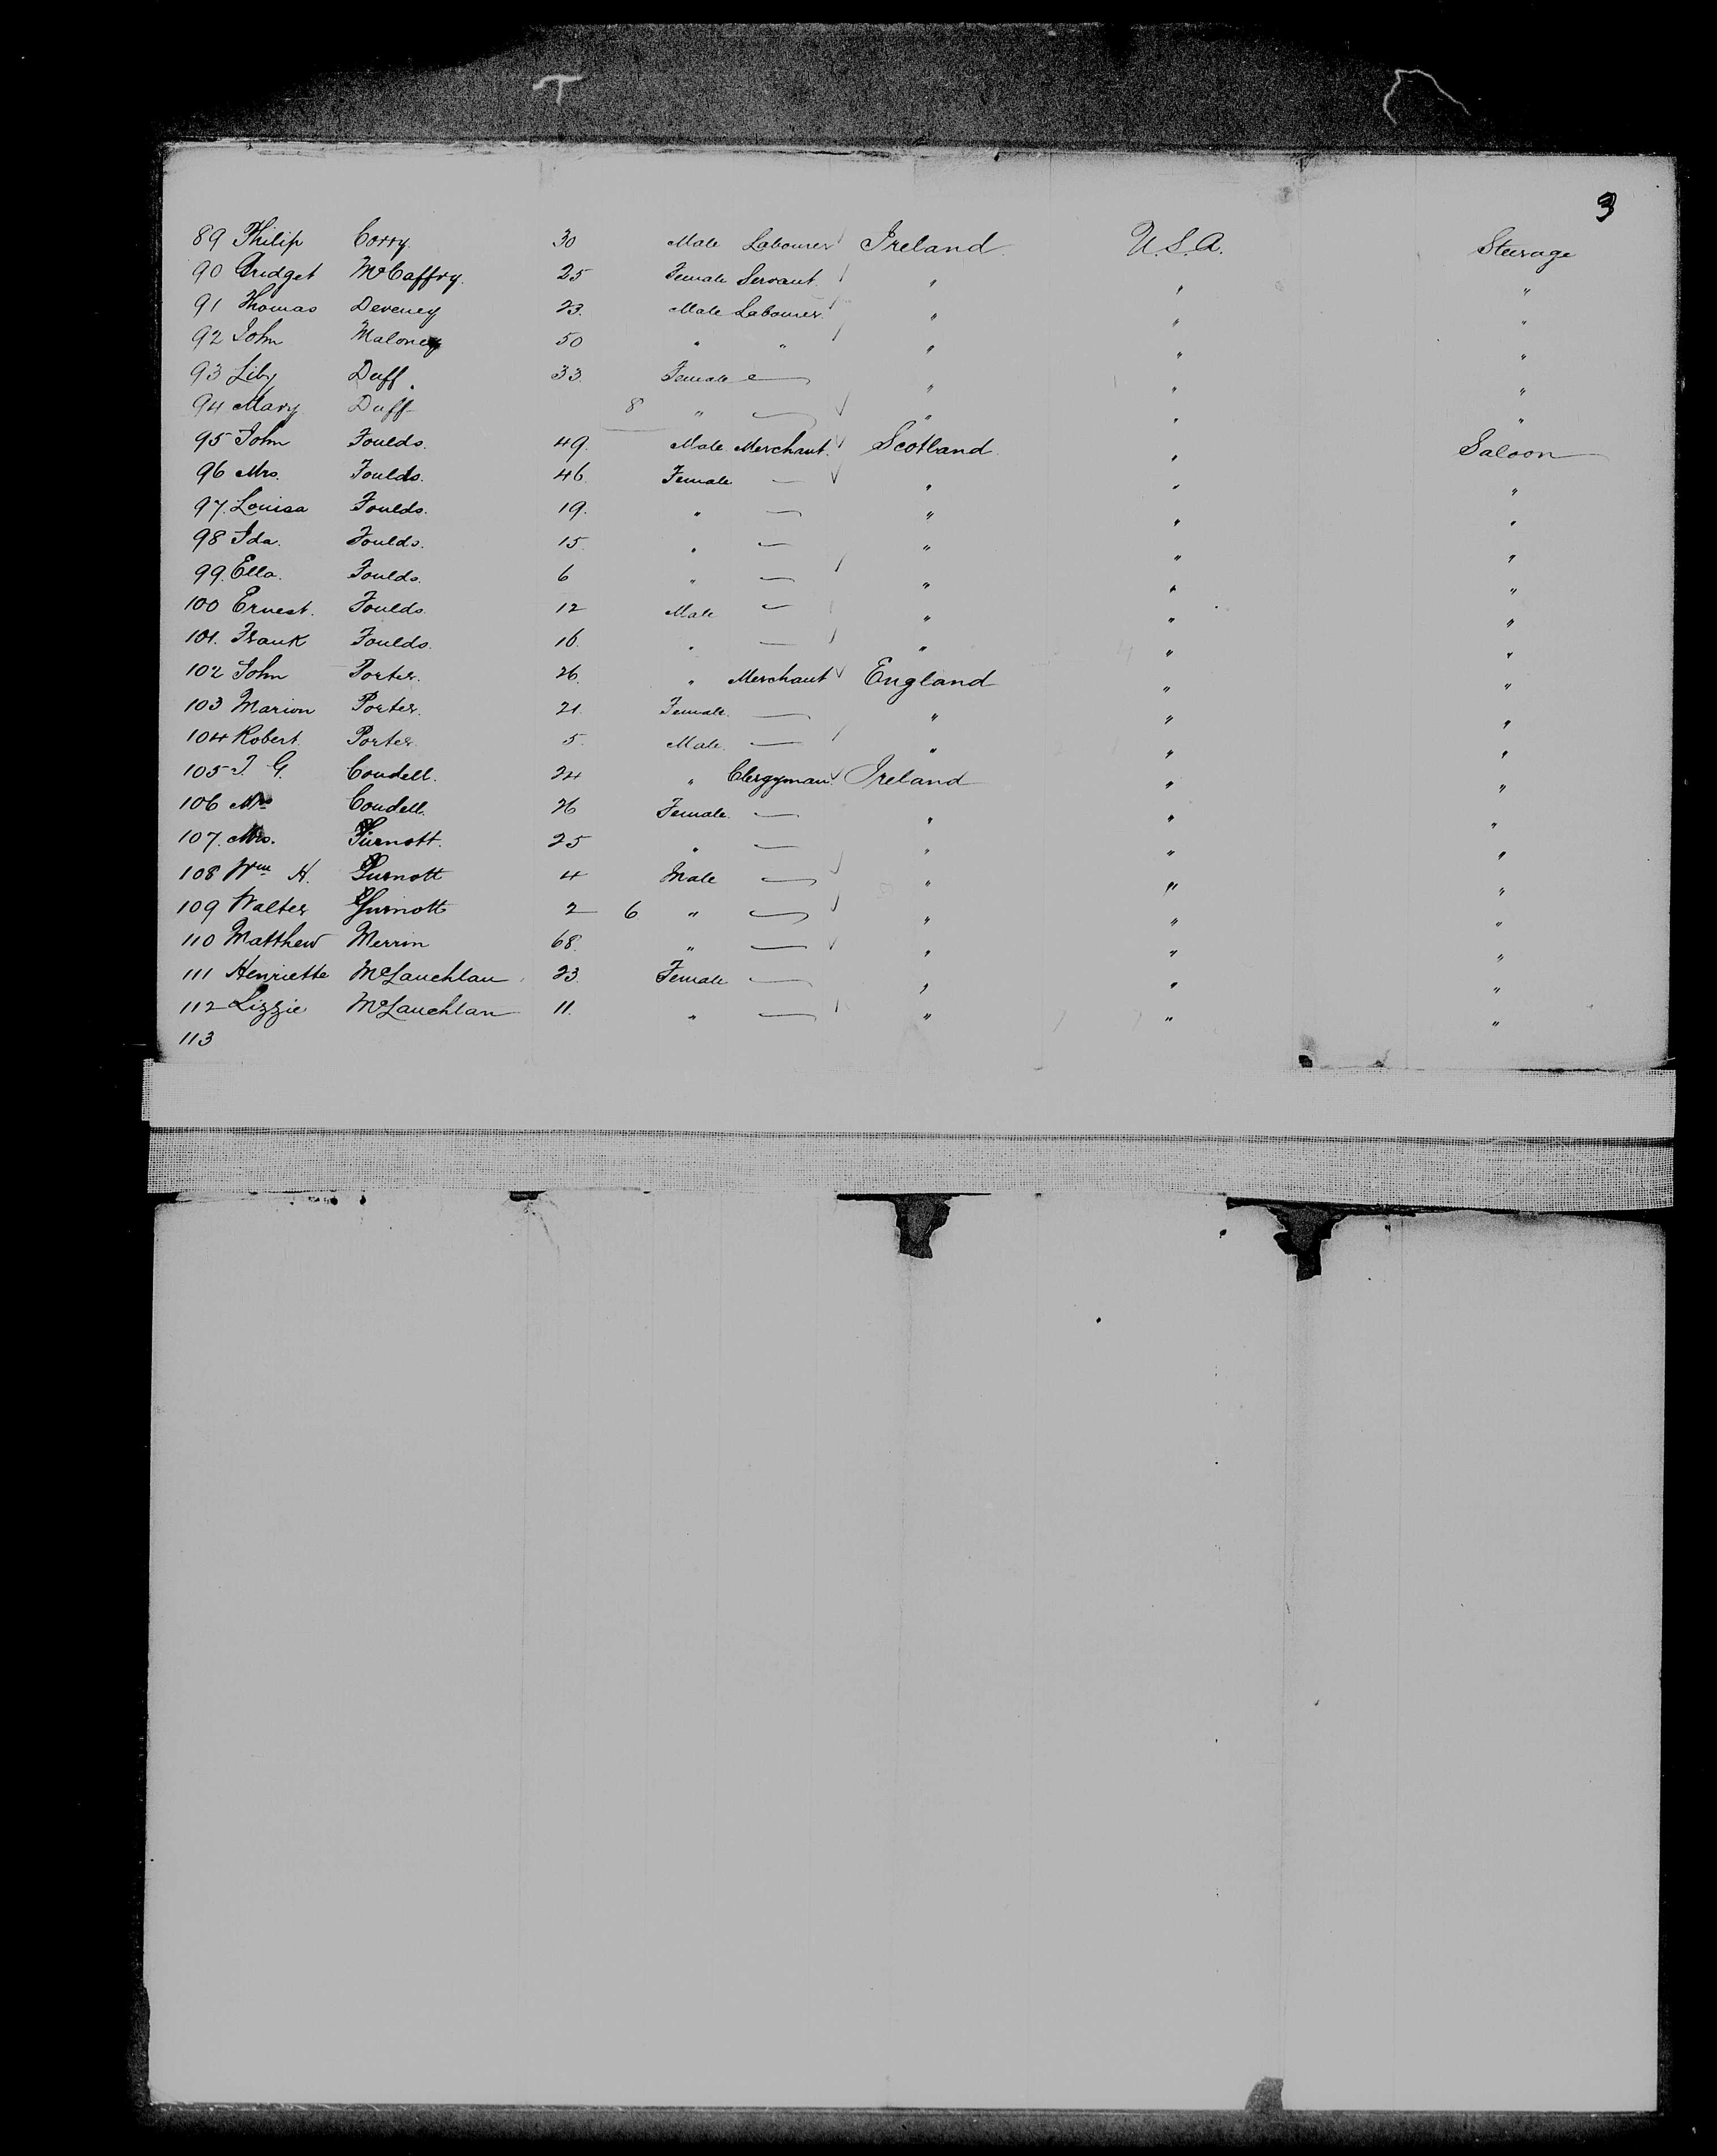 3
89 Philip Corry. 30 Male Labourer Ireland U.S.A. Steerage
90 Bridget McCaffry. 25 Female Servant. " " "
91 Thomas Deveney 23. Male Labourer. " " "
92 John Maloney 50 " " " " "
93 Liby Duff. 33. Female — " " "
94 Mary Duff 8 " — " " "
95 John Foulds. 49. Male Merchant. Scotland " Saloon
96 Mrs. Foulds. 46. Female — " " "
97. Louisa Foulds. 19. " — " " "
98 Ida. Foulds. 15. " — " " "
99. Ella. Foulds. 6 " — " " "
100 Ernest. Foulds. 12 Male — " " "
101. Frank Foulds. 16. " — " " "
102 John Porter. 26. " Merchant England " "
103 Marion Porter. 21. Female. — " " "
104 Robert. Porter. 5. Male. — " " "
105 J. G. Condell. 24 " Clergyman. Ireland " "
106 Mrs Condell. 26 Female. — " " "
107. Mrs. 25 " — " " "
108 Wm H. 4 Male — " " "
109 Walter 2 6 " — " " "
110 Matthew Merrin 68. " — " " "
111 Henriette McLauchlan 23. Female — " " "
112 Lizzie McLauchlan 11. " — " " "
113